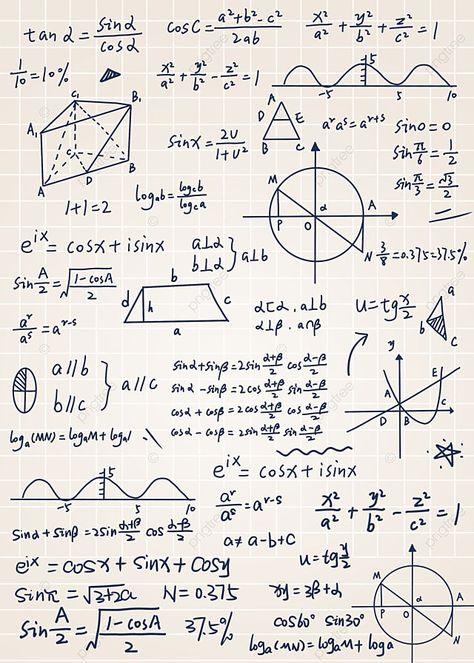 tanα = sinα/cosα
cosC = a²+b²-c²/2ab
x²/a² + y²/b² + z²/c² = 1
1/10 = 10%
x²/a² + y²/b² - z²/c² = 1
5
-5 5 10
C₁ B₁
A₁
C
A D B
sinx = 2U/1+U²
A
D E
B C
aʳaˢ = aʳ⁺ˢ
sin0 = 0
sinπ/6 = 1/2
sinπ/3 = √3/2
1+1=2
log ab = log c b/log c a
M
P O α A
N
3/8 = 0.375 = 37.5%
eⁱˣ = cosx + isinx
a⊥α
b⊥α } a⊥b
sin A/2 = √1-cosA/2
b
d h c
a
α⊏α, a⊥b
α⊥β, a∩β
u = tg x/2
a
b
c
aʳ/aˢ = aʳ⁻ˢ
a//b
b//c } a//c
sinα+sinβ = 2sin α+β/2 cos α-β/2
sinα-sinβ = 2cos α+β/2 sin α-β/2
cosα+cosβ = 2cos α+β/2 cos α-β/2
cosα-cosβ = 2sin α+β/2 sin α-β/2
y
E
A
D B C
x
logₐ(MN) = logₐM + logₐ
eⁱˣ = cosx + isinx
5
-5 5 10
aʳ/aˢ = aʳ⁻ˢ
x²/a² + y²/b² - z²/c² = 1
sinα+sinβ = 2sin α+β/2 cos α-β/2
a≠a-b+c
eⁱˣ = cosx + sinx + cosy
u = tg y/2
sinπ = √3+2a
N = 0.375
xy = 3β+α
M
P O α A
N
sin A/2 = √1-cosA/2
37.5%
cos60° sin30°
logₐ(MN) = logₐM + logₐ
pngtree